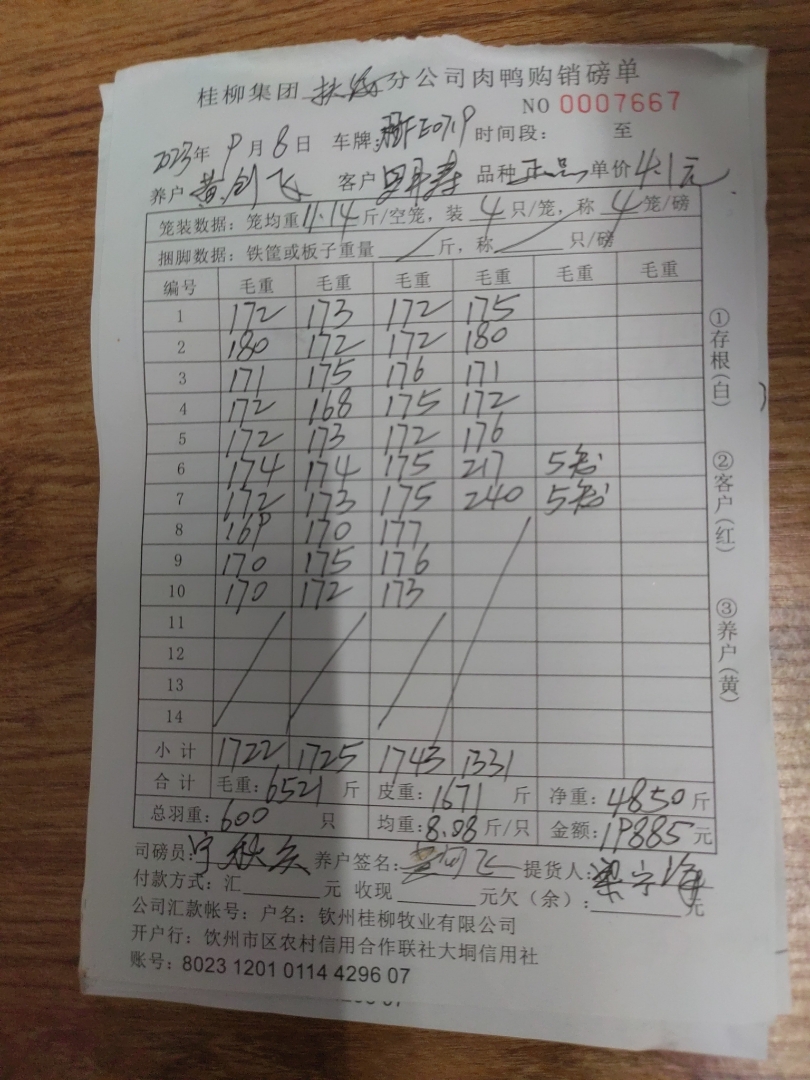 桂柳集团 扶绥 分公司肉鸭购销磅单
NO 0007667
2023年 9月8日 车牌: 时间段: 至
养户 黄创飞 客户 品种 正品 单价 4.1元
笼装数据: 笼均重 11.14 斤/空笼, 装 4 只/笼, 称 4 笼/磅
捆脚数据: 铁筐或板子重量 斤, 称 只/磅
编号 毛重 毛重 毛重 毛重 毛重 毛重
1 172 173 172 175
2 180 172 172 180
3 171 175 176 171
4 172 168 175 172
5 172 173 172 176
6 174 174 175 217 5笼
7 172 173 175 240 5笼
8 169 170 177
9 170 175 176
10 170 172 173
11
12
13
14
小计 1722 1725 1743 1331
合计 毛重: 6521 斤 皮重: 1671 斤 净重: 4850 斤
总羽重: 600 只 均重: 8.08 斤/只 金额: 19885 元
司磅员: 养户签名: 提货人:
付款方式: 汇 元 收现 元欠(余): 元
公司汇款帐号: 户名: 钦州桂柳牧业有限公司
开户行: 钦州市区农村信用合作联社大垌信用社
账号: 8023 1201 0114 4296 07
①存根(白)
②客户(红)
③养户(黄)